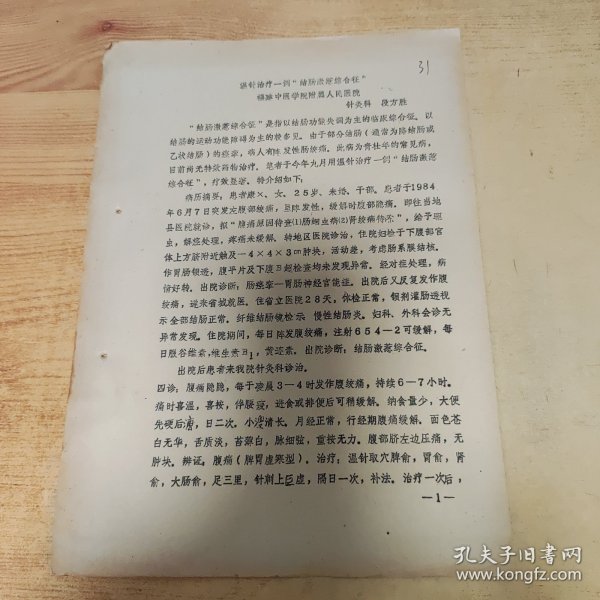 31
温针治疗一例“结肠激惹综合征”
福建中医学院附属人民医院
针灸科 段方胜
“结肠激惹综合征”是指以结肠功能失调为主的临床综合征。以
结肠的运动功能障碍为主的较多见。由于部分结肠(通常为降结肠或
乙状结肠)的痉挛,病人有阵发性肠绞痛。此病为青壮年的常见病,
目前尚无特效药物治疗。笔者于今年九月用温针治疗一例“结肠激惹
综合征”,疗效显著。特介绍如下:
病历摘要:患者康×、女、25岁、未婚、干部。患者于1984
年6月7日突发左腹部绞痛,呈阵发性,缓解时腹部隐痛。即往当地
县医院就诊,拟“腹痛原因待查⑴肠蛔虫病⑵肾绞痛待不”,给予驱
虫,解痉处理,疼痛未缓解。转地区医院诊治,住院妇检于下腹部宫
体上方脐附近触及一4×4×3cm肿块,活动差,考虑肠系膜结核。
作胃肠钡透,腹平片及下腹B超检查均未发现异常。经对症处理,病
情好转。出院诊断:肠痉挛—胃肠神经官能症。出院后又反复发作腹
绞痛,遂来省城就医。住省立医院28天。体检正常,钡剂灌肠透视
示全部结肠正常。纤维结肠镜检示:慢性结肠炎。妇科、外科会诊无
异常发现。住院期间,每日阵发腹绞痛,注射654—2可缓解,每
日服谷维素,维生素B1,黄连素。出院诊断:结肠激惹综合征。
出院后患者来我院针灸科诊治。
四诊:腹痛隐隐,每于凌晨3—4时发作腹绞痛,持续6—7小时。
痛时喜温,喜按,伴腰痠,进食或排便后可稍缓解。纳食量少,大便
先硬后溏,日二次。小溲清长。月经正常,行经期腹痛缓解。面色苍
白无华,舌质淡,苔源白,脉细弦,重按无力。腹部脐左边压痛,无
肿块。辨证,腹痛(脾胃虚寒型)。治疗,温针取穴脾俞,胃俞,肾
俞,大肠俞,足三里,针刺上巨虚,隔日一次,补法。治疗一次后,
—1—
孔夫子旧书网
www.kongfz.com